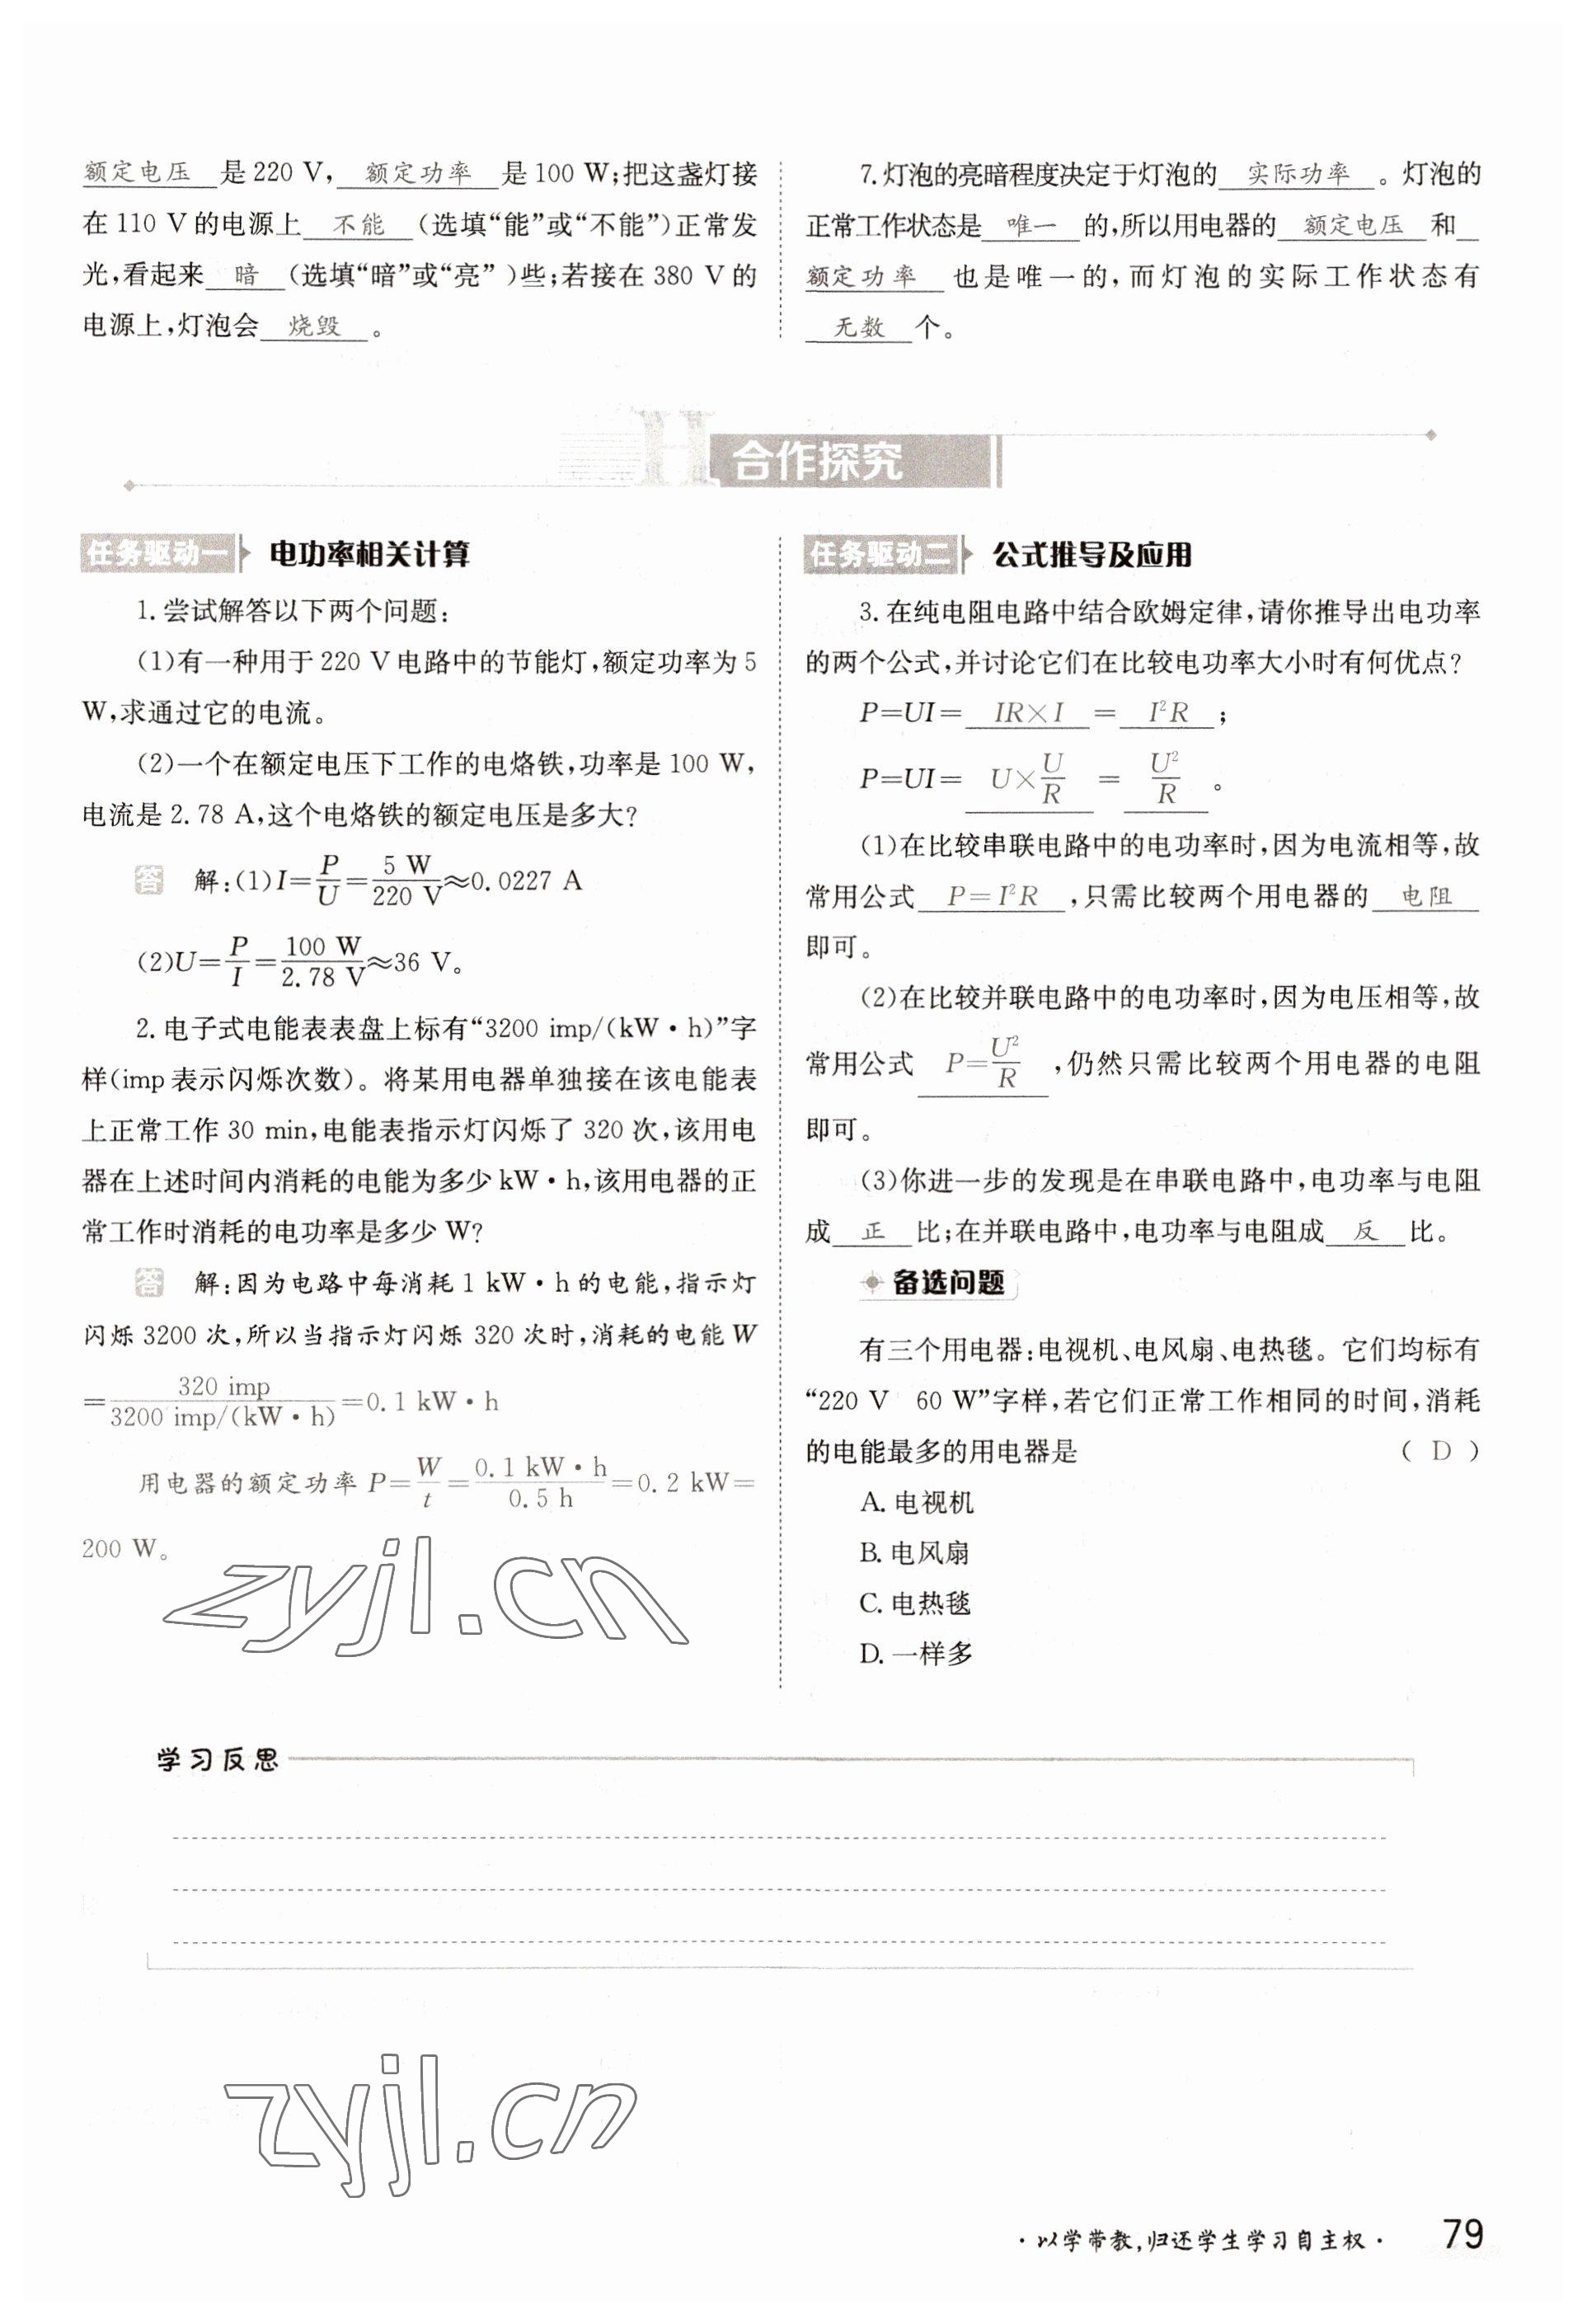 额定电压 是220 V, 额定功率 是100 W;把这盏灯接
在110 V的电源上 不能 (选填“能”或“不能”)正常发
光,看起来 暗 (选填“暗”或“亮”)些;若接在380 V的
电源上,灯泡会 烧毁 。
7.灯泡的亮暗程度决定于灯泡的 实际功率 。灯泡的
正常工作状态是 唯一 的,所以用电器的 额定电压 和
额定功率 也是唯一的,而灯泡的实际工作状态有
无数 个。
合作探究
任务驱动一 电功率相关计算
1.尝试解答以下两个问题:
(1)有一种用于220 V电路中的节能灯,额定功率为5
W,求通过它的电流。
(2)一个在额定电压下工作的电烙铁,功率是100 W,
电流是2.78 A,这个电烙铁的额定电压是多大?
答 解:(1)I=P/U=5 W/220 V≈0.0227 A
(2)U=P/I=100 W/2.78 V≈36 V。
2.电子式电能表表盘上标有“3200 imp/(kW·h)”字
样(imp表示闪烁次数)。将某用电器单独接在该电能表
上正常工作30 min,电能表指示灯闪烁了320次,该用电
器在上述时间内消耗的电能为多少kW·h,该用电器的正
常工作时消耗的电功率是多少W?
答 解:因为电路中每消耗1 kW·h的电能,指示灯
闪烁3200次,所以当指示灯闪烁320次时,消耗的电能W
=320 imp/3200 imp/(kW·h)=0.1 kW·h
用电器的额定功率P=W/t=0.1 kW·h/0.5 h=0.2 kW=
200 W。
zyjl.cn
任务驱动二 公式推导及应用
3.在纯电阻电路中结合欧姆定律,请你推导出电功率
的两个公式,并讨论它们在比较电功率大小时有何优点?
P=UI= IR×I = I²R ;
P=UI= U×U/R = U²/R 。
(1)在比较串联电路中的电功率时,因为电流相等,故
常用公式 P=I²R ,只需比较两个用电器的 电阻
即可。
(2)在比较并联电路中的电功率时,因为电压相等,故
常用公式 P=U²/R ,仍然只需比较两个用电器的电阻
即可。
(3)你进一步的发现是在串联电路中,电功率与电阻
成 正 比;在并联电路中,电功率与电阻成 反 比。
备选问题
有三个用电器:电视机、电风扇、电热毯。它们均标有
“220 V 60 W”字样,若它们正常工作相同的时间,消耗
的电能最多的用电器是 ( D )
A.电视机
B.电风扇
C.电热毯
D.一样多
学习反思
zyjl.cn
·以学带教,归还学生学习自主权· 79